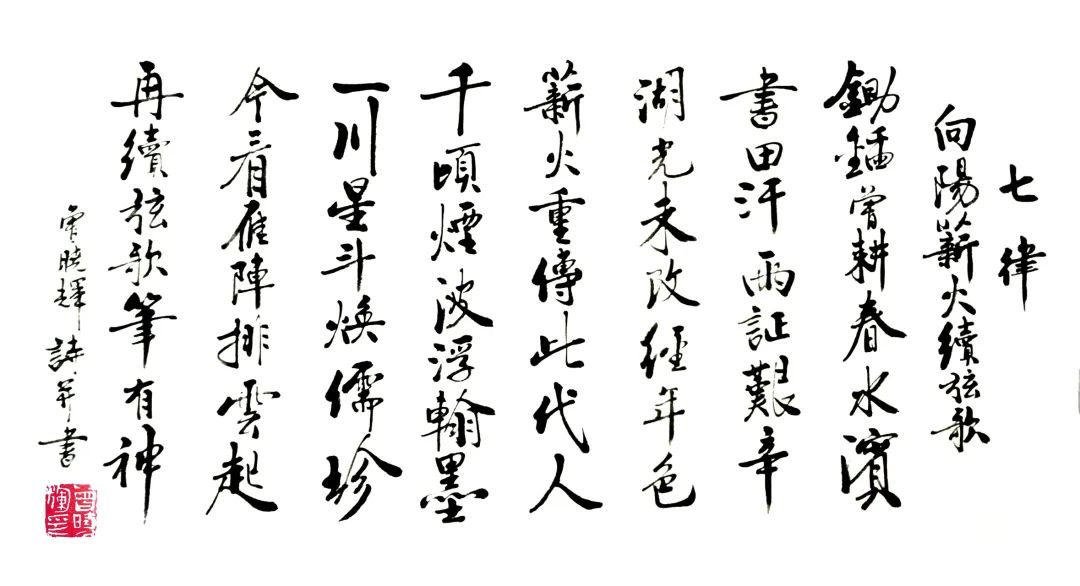 七律
向陽薪火續弦歌
鋤鍤曾耕春水濱
書田汗雨証艱辛
湖光未改經年色
薪火重傳此代人
千頃煙波浮翰墨
一川星斗煥儒珍
今看雁陣排雲起
再續弦歌筆有神
曾曉輝詩并書